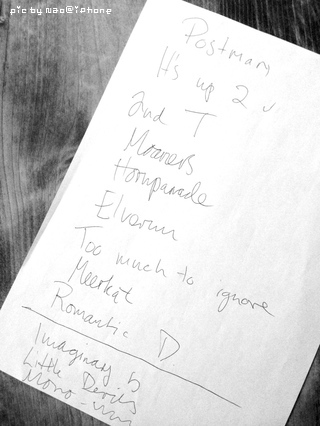 pic by Nao@iphone
Postman
It's up 2 U
2nd T
Moaners
Hornparade
Elverum
Too much to ignore
Meerkat
Romantic D.
Imaginary 5
Little Devils
Mono-